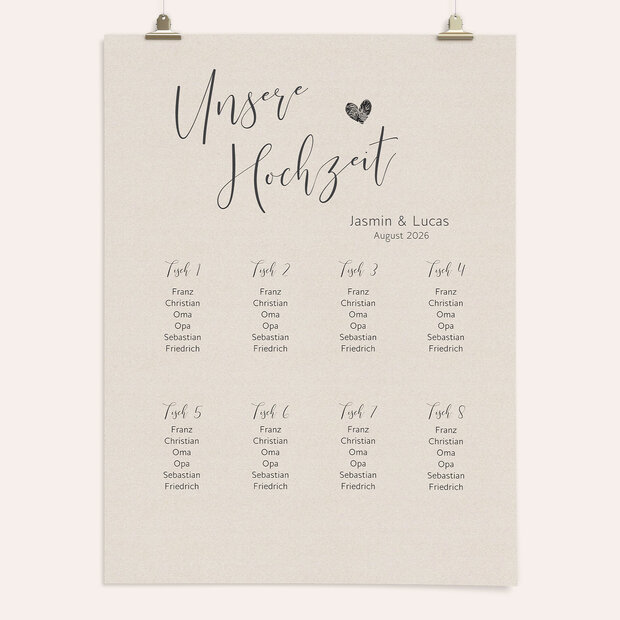 Unsere
Hochzeit
Jasmin & Lucas
August 2026
Tisch 1 Tisch 2 Tisch 3 Tisch 4
Franz Franz Franz Franz
Christian Christian Christian Christian
Oma Oma Oma Oma
Opa Opa Opa Opa
Sebastian Sebastian Sebastian Sebastian
Friedrich Friedrich Friedrich Friedrich
Tisch 5 Tisch 6 Tisch 7 Tisch 8
Franz Franz Franz Franz
Christian Christian Christian Christian
Oma Oma Oma Oma
Opa Opa Opa Opa
Sebastian Sebastian Sebastian Sebastian
Friedrich Friedrich Friedrich Friedrich